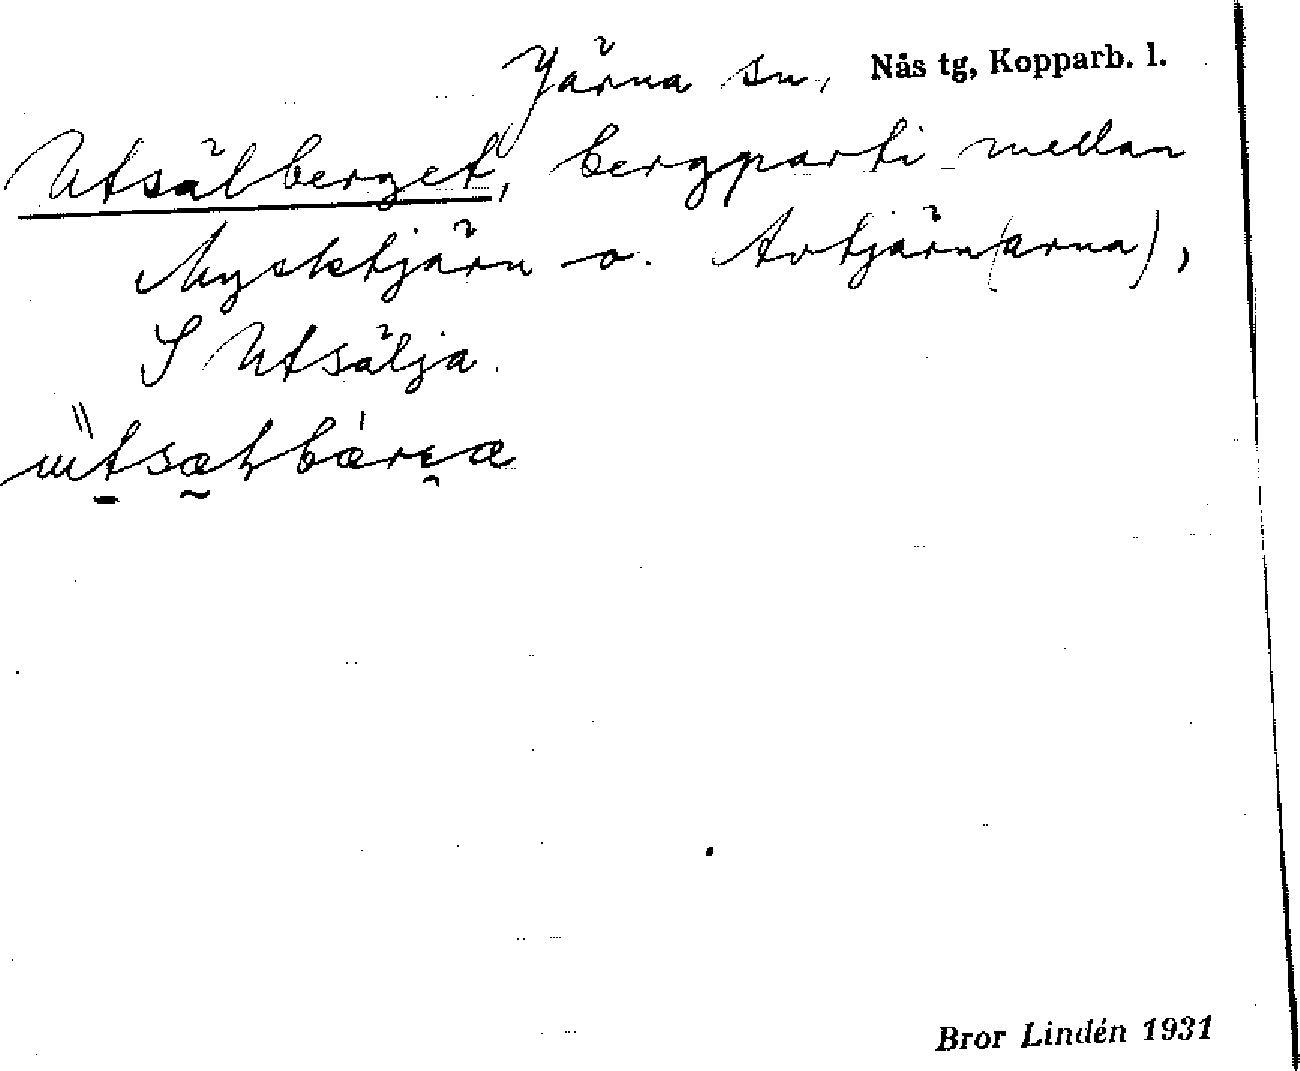 Järna sn, Nås tg, Kopparb. l.
Utsälberget, bergparti mellan
Mysktjärn o. Avtjärn(arna),
S Utsälja.
Bror Lindén 1931